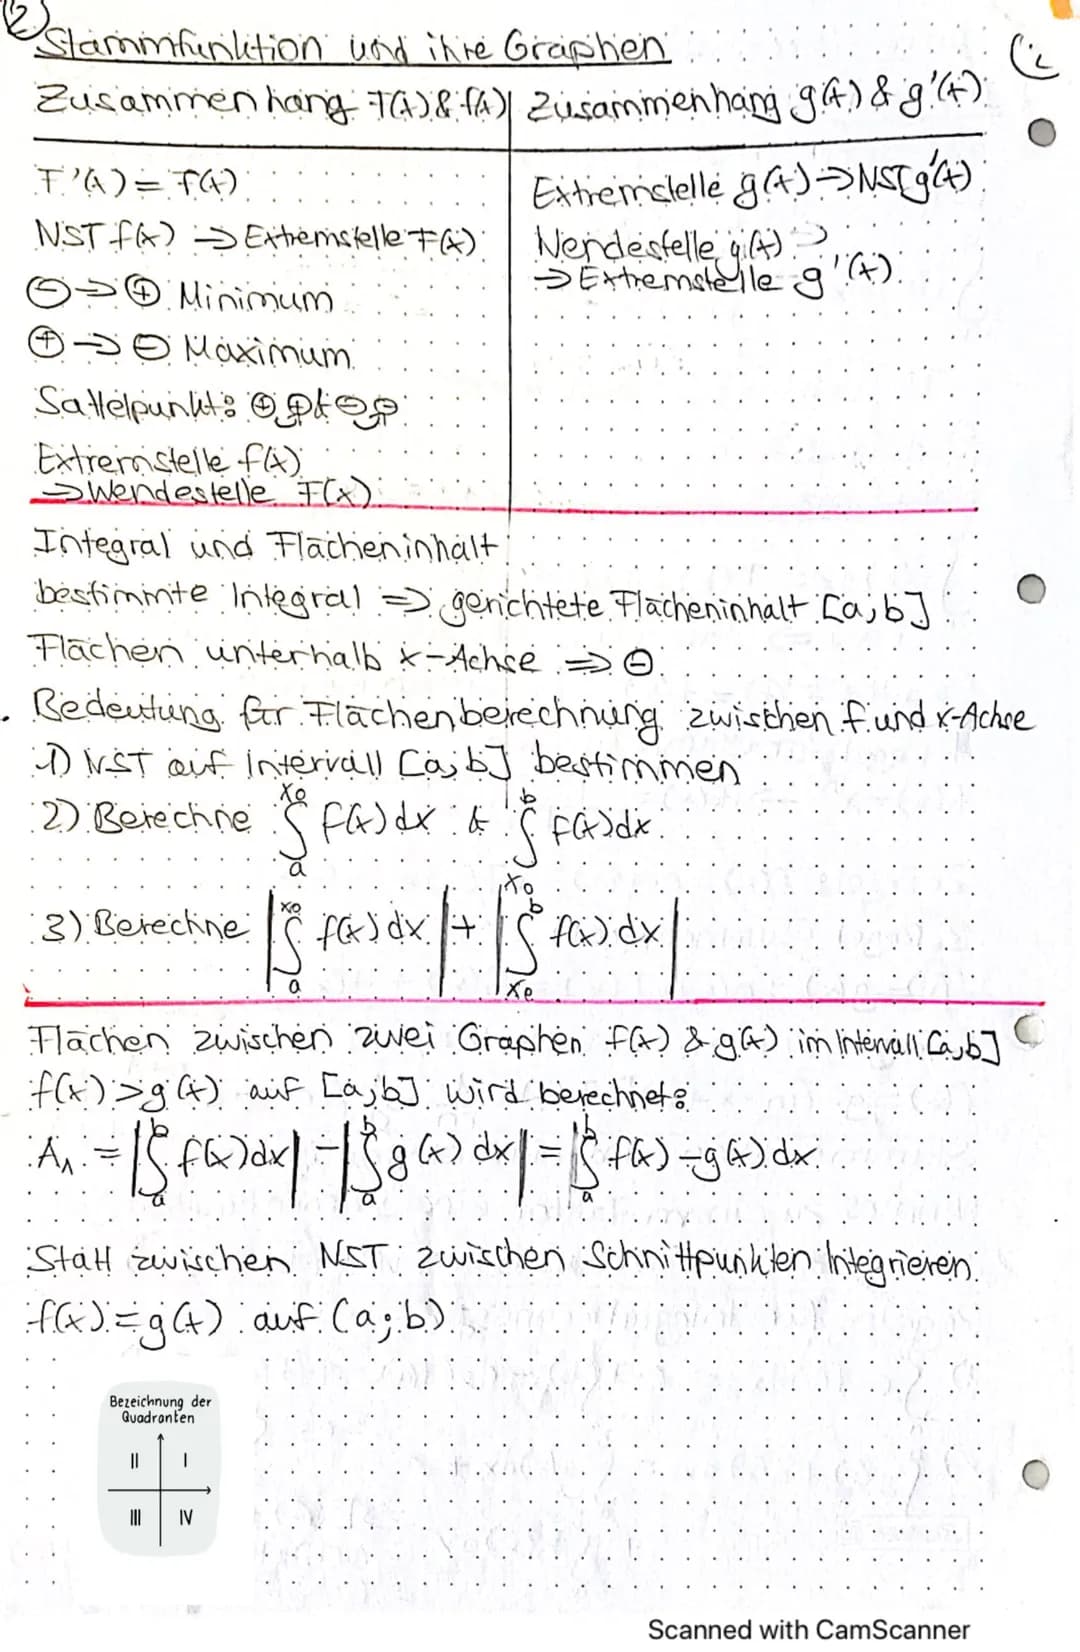 2)
Stammfunktion und ihre Graphen
Zusammenhang F(x) & f(x) | Zusammenhang g(x) & g'(x)
F'(x) = f(x)
NST f(x) → Extremstelle F(x)
⊖ → ⊕ Minimum
⊕ → ⊖ Maximum
Sattelpunkt:
Extremstelle f(x)
→ Wendestelle F(x)
Extremstelle g(x) → NST g'(x)
Wendestelle g(x)
→ Extremstelle g'(x)
Integral und Flächeninhalt
bestimmte Integral ⇒ gerichtete Flächeninhalt [a;b]
Flächen unterhalb x-Achse ⇒ ⊖
Bedeutung für Flächenberechnung zwischen f und x-Achse
1) NST auf Intervall [a;b] bestimmen
2) Berechne ∫ₐ^x₀ f(x) dx & ∫ₓ₀^b f(x) dx
3) Berechne |∫ₐ^x₀ f(x) dx| + |∫ₓ₀^b f(x) dx|
Flächen zwischen zwei Graphen f(x) & g(x) im Intervall [a;b]
f(x) > g(x) auf [a;b] wird berechnet:
A₁ = |∫ₐ^b f(x) dx| - |∫ₐ^b g(x) dx| = |∫ₐ^b f(x) - g(x) dx
Statt zwischen NST zwischen Schnittpunkten integrieren
f(x) = g(x) auf (a;b)
Bezeichnung der
Quadranten
II I
III IV
Scanned with CamScanner